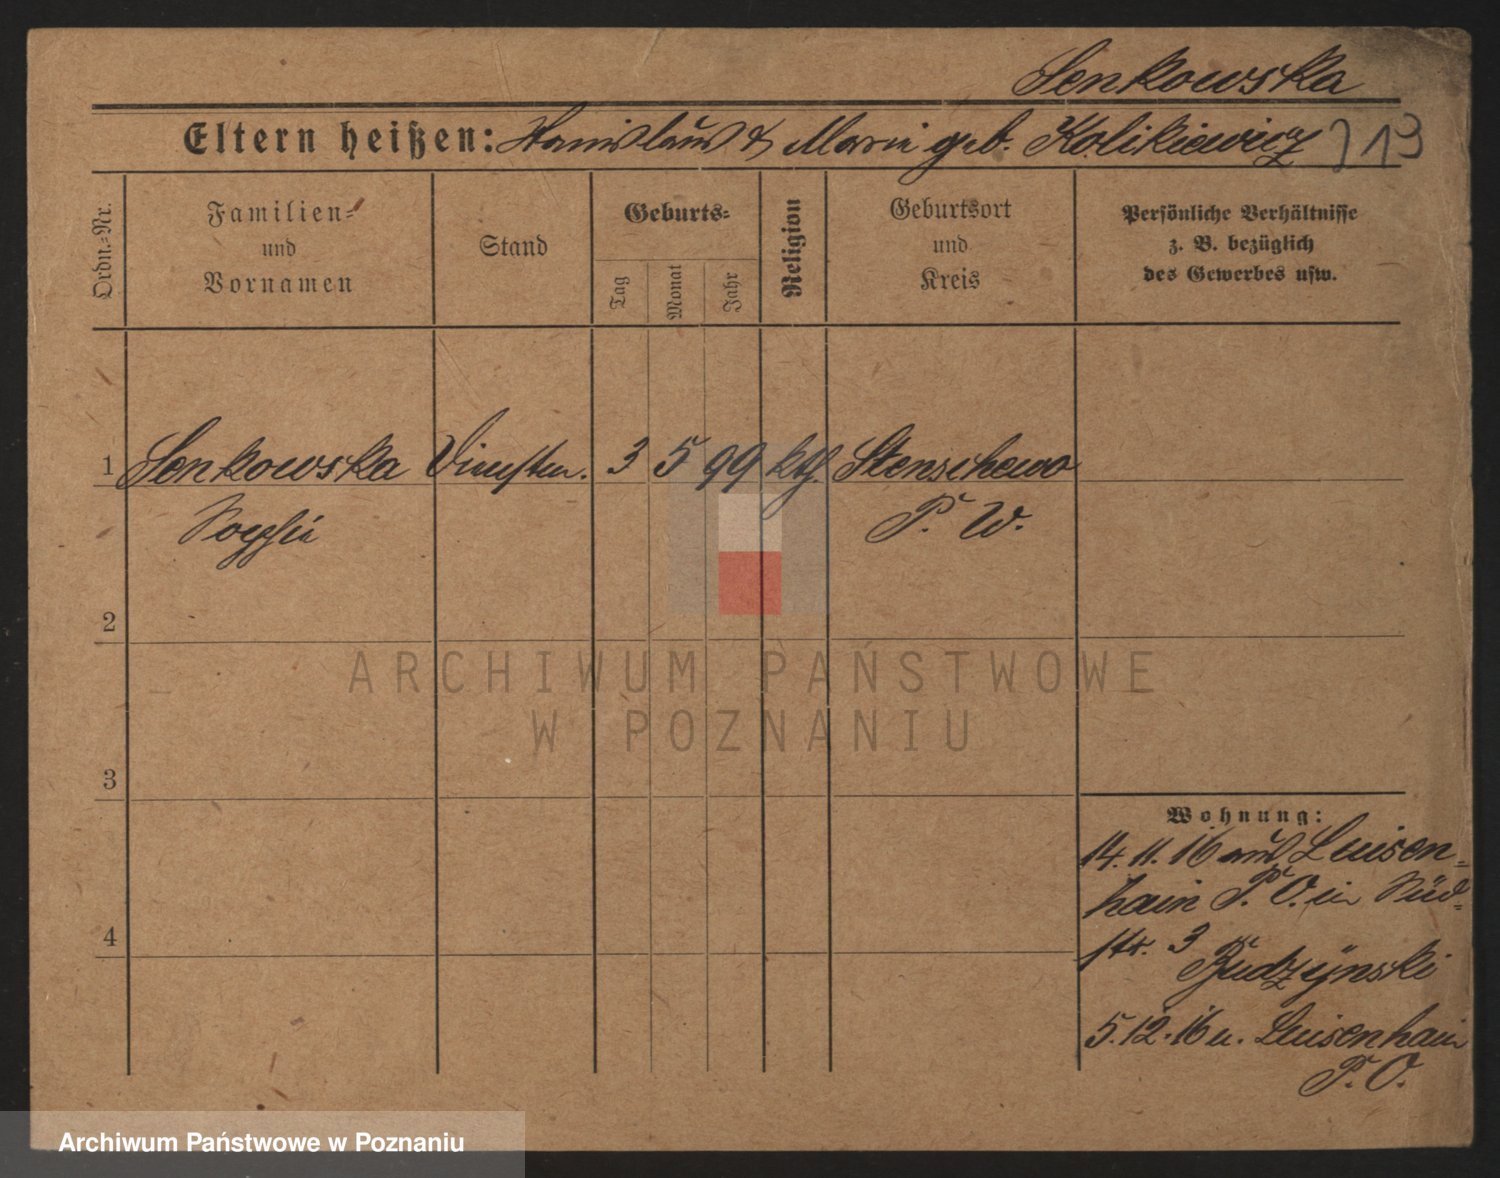 Senkowska
Eltern heißen: Stanislaus & Marie geb. Kolikiewicz 313
Ordn.-Nr.
Familien-
und
Vornamen
Stand
Geburts-
Tag
Monat
Jahr
Religion
Geburtsort
und
Kreis
Persönliche Verhältnisse
z. B. bezüglich
des Gewerbes usw.
1 Senkowska 3 5 99 kth. Stenschewo
Sophie P. W.
2
3
4
Wohnung:
14.11.16 aus Luisen-
hain P. O. in Süd-
str. 3
Budzÿnski
5.12.16 n. Luisenhain
P. O.
ARCHIWUM PAŃSTWOWE
W POZNANIU
Archiwum Państwowe w Poznaniu